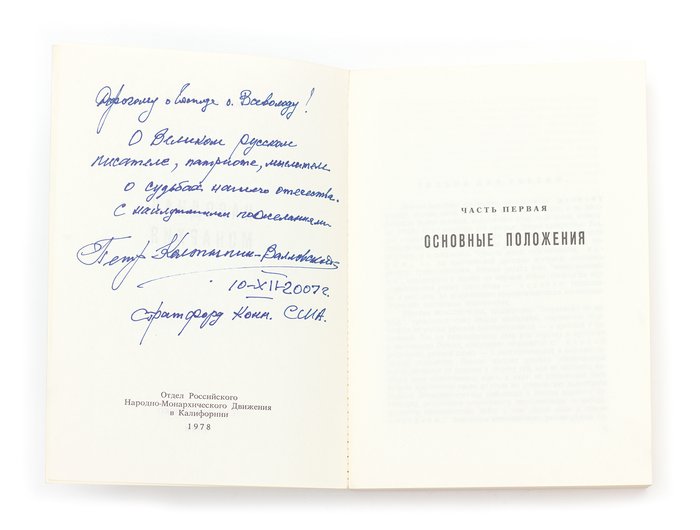 Дорогому о Господе о. Всеволоду!
О Великом русском
писателе, патриоте, мыслителе
о судьбах нашего отечества.
С наилучшими пожеланиями
Петр Колтыпин-Валловской
10-XII-2007 г.
Стратфорд Конн. США.
Отдел Российского
Народно-Монархического Движения
в Калифорнии
1978
ЧАСТЬ ПЕРВАЯ
ОСНОВНЫЕ ПОЛОЖЕНИЯ